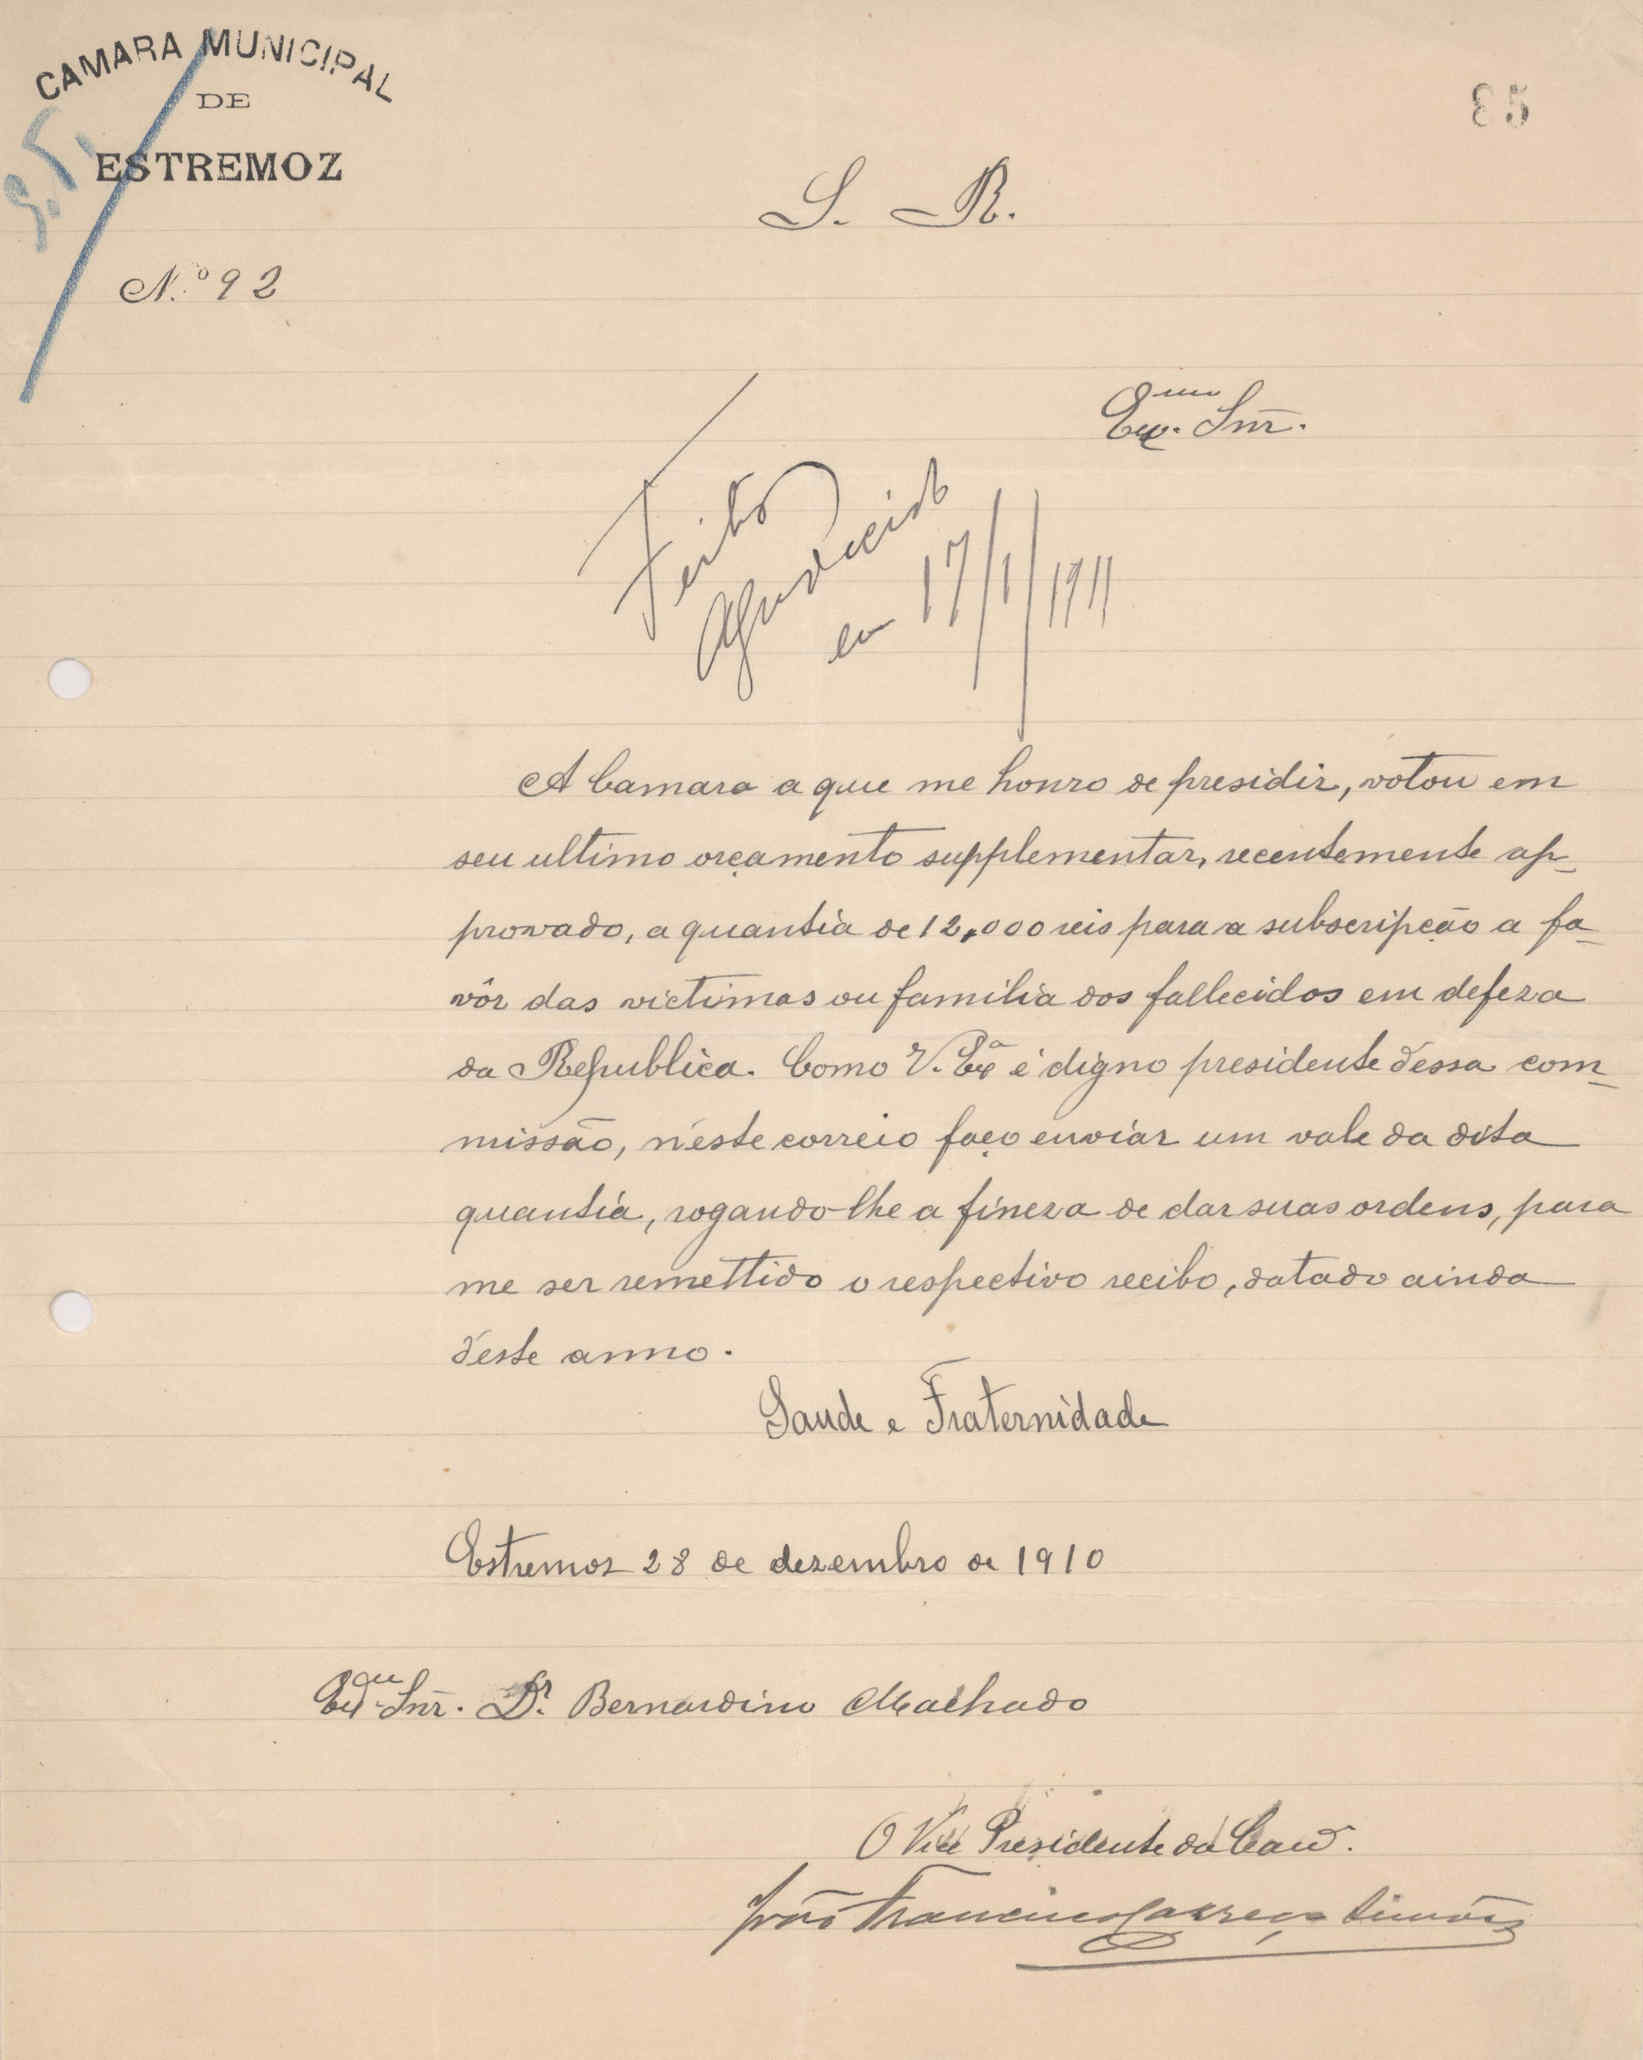 CAMARA MUNICIPAL
DE
ESTREMOZ
N.º 92
S. R.
Exmo. Snr.
Feito
Agradecido
em 17/1/1911
A Camara a que me honro de presidir, votou em
seu ultimo orçamento supplementar, recentemente ap-
provado, a quantia de 12,000 reis para a subscripção a fa-
vôr das victimas ou familia dos fallecidos em defeza
da Republica. Como V. Exª é digno presidente d'essa com-
missão, n'este correio faço enviar um vale da dita
quantia, rogando-lhe a fineza de dar suas ordens, para
me ser remettido o respectivo recibo, datado ainda
d'este anno.
Saude e Fraternidade
Estremoz 28 de dezembro de 1910
Exmo Snr. Dr. Bernardino Machado
O Vice Presidente da Cam.
João Francisco Carreço Simões